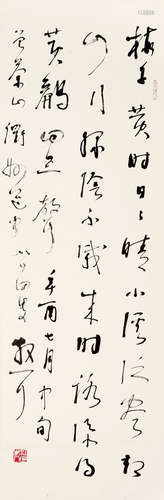 梅子黄时日日晴小溪泛尽却
山行绿阴不减来时路添得
黄鹂四五声
曾茶山衢州道中
辛酉七月中旬
散耳